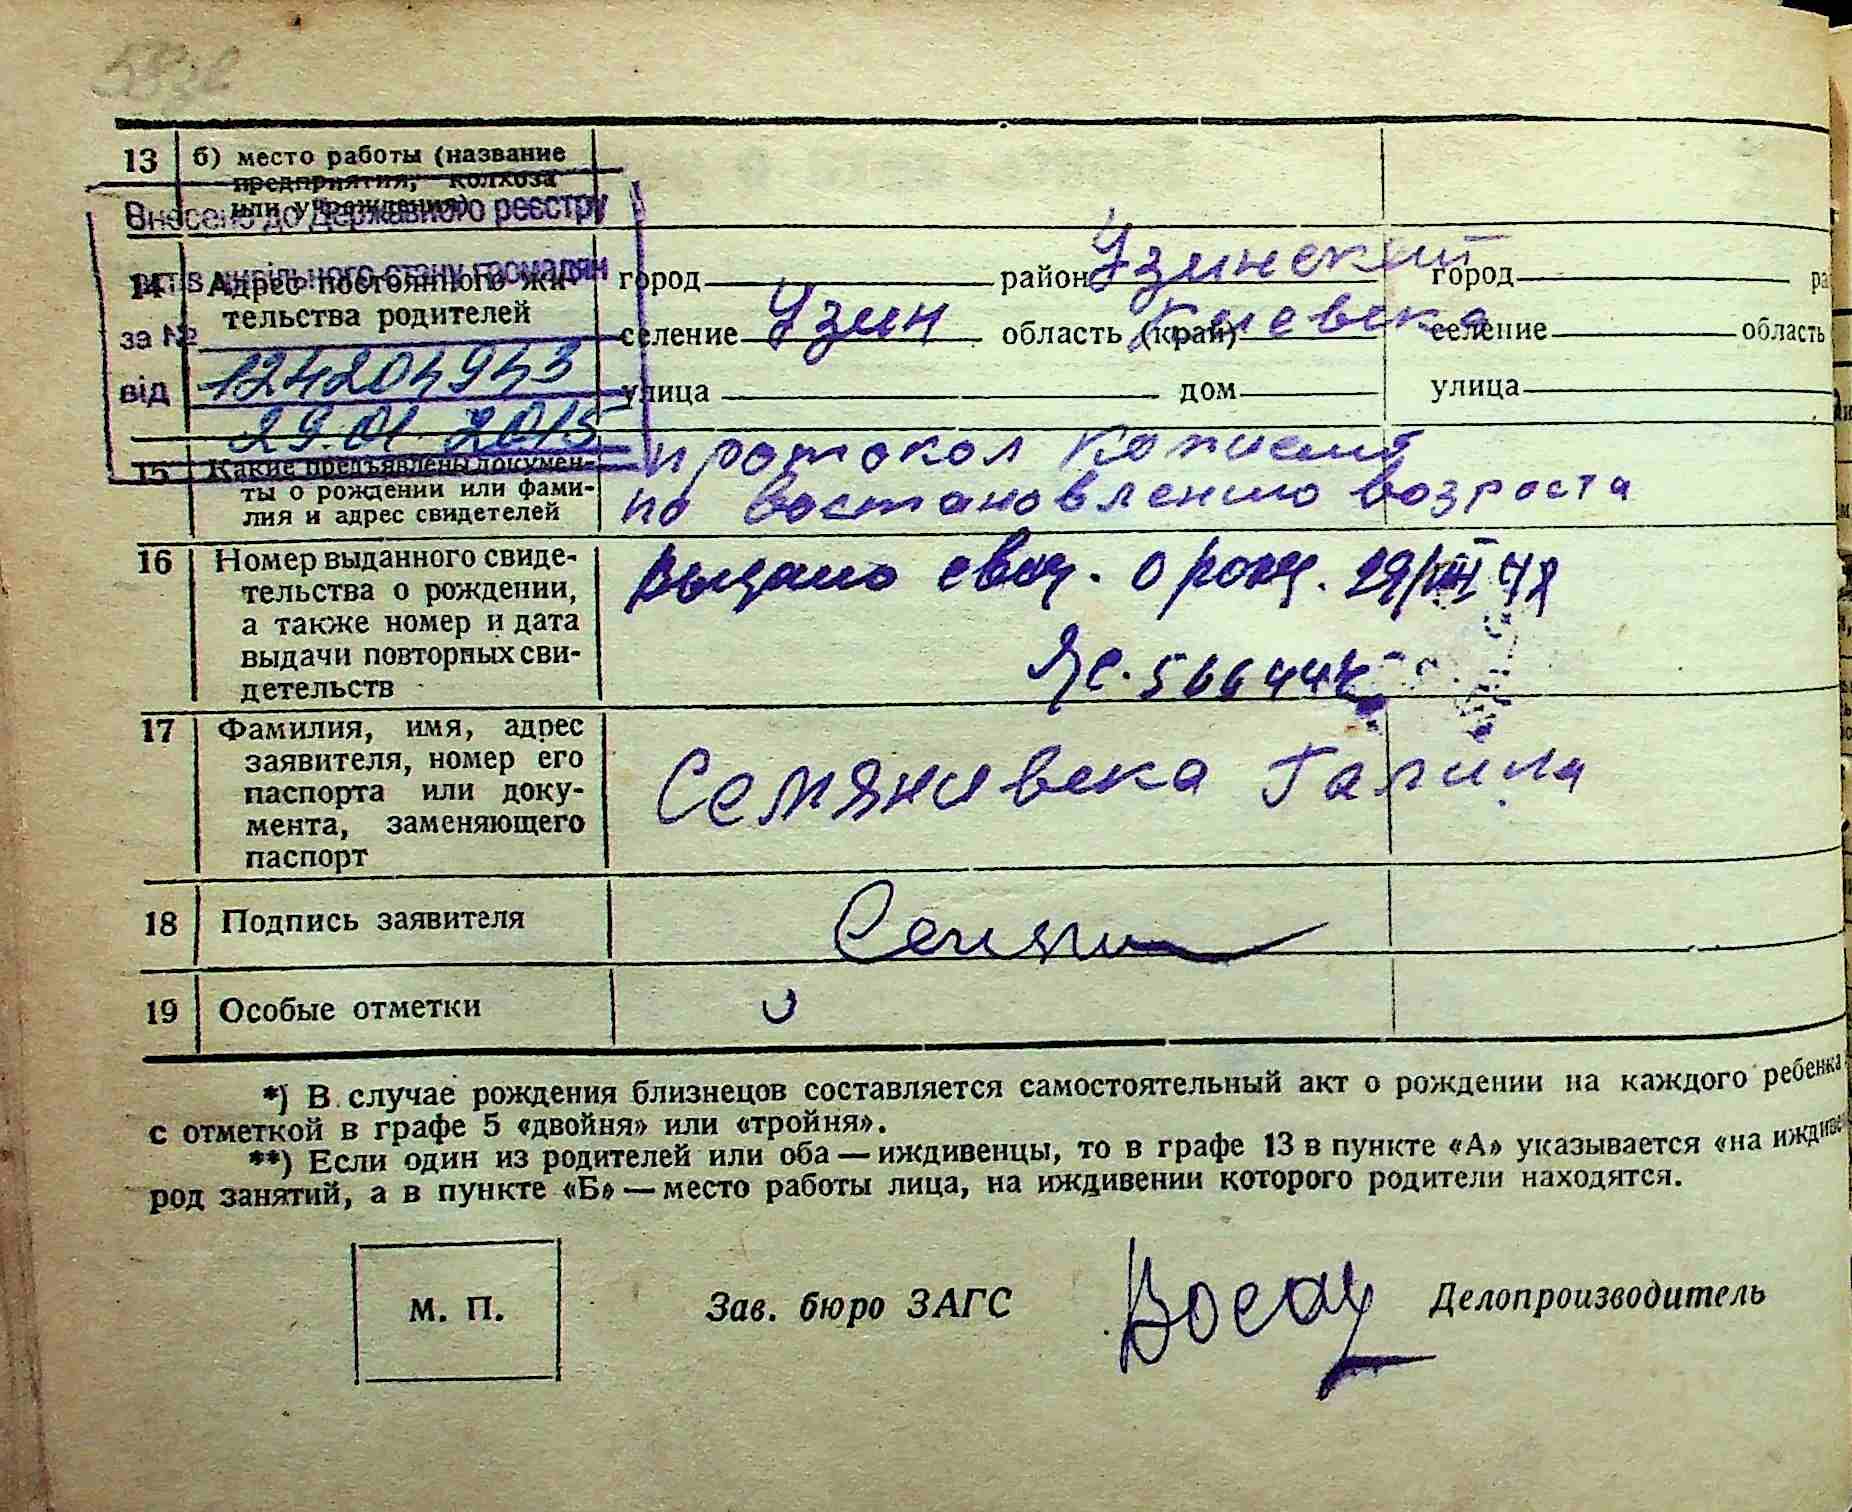 13 б) место работы (название
предприятия, колхоза
или учреждения)
Внесено до Державного реєстру
актів цивільного стану громадян
за №
124204943
від
29.01.2015
14 Адрес постоянного жи-
тельства родителей
город район Узинский город
селение Узин область (край) Киевска селение область
улица дом улица
15 Какие предъявлены докумен-
ты о рождении или фами-
лия и адрес свидетелей
протокол комисии
по востановлению возроста
16 Номер выданного свиде-
тельства о рождении,
а также номер и дата
выдачи повторных сви-
детельств
Выдано свид. о рожд.
17 Фамилия, имя, адрес
заявителя, номер его
паспорта или доку-
мента, заменяющего
паспорт
Семянивска Галина
18 Подпись заявителя
19 Особые отметки
*) В случае рождения близнецов составляется самостоятельный акт о рождении на каждого ребенка
с отметкой в графе 5 «двойня» или «тройня».
**) Если один из родителей или оба — иждивенцы, то в графе 13 в пункте «А» указывается «на иждиве
род занятий, а в пункте «Б» — место работы лица, на иждивении которого родители находятся.
М. П. Зав. бюро ЗАГС Делопроизводитель